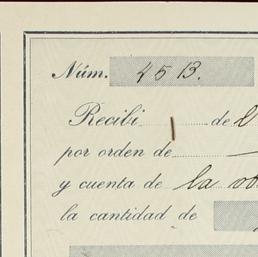 Núm. 45 B.
Recibí de l
por orden de
y cuenta de la ob
la cantidad de